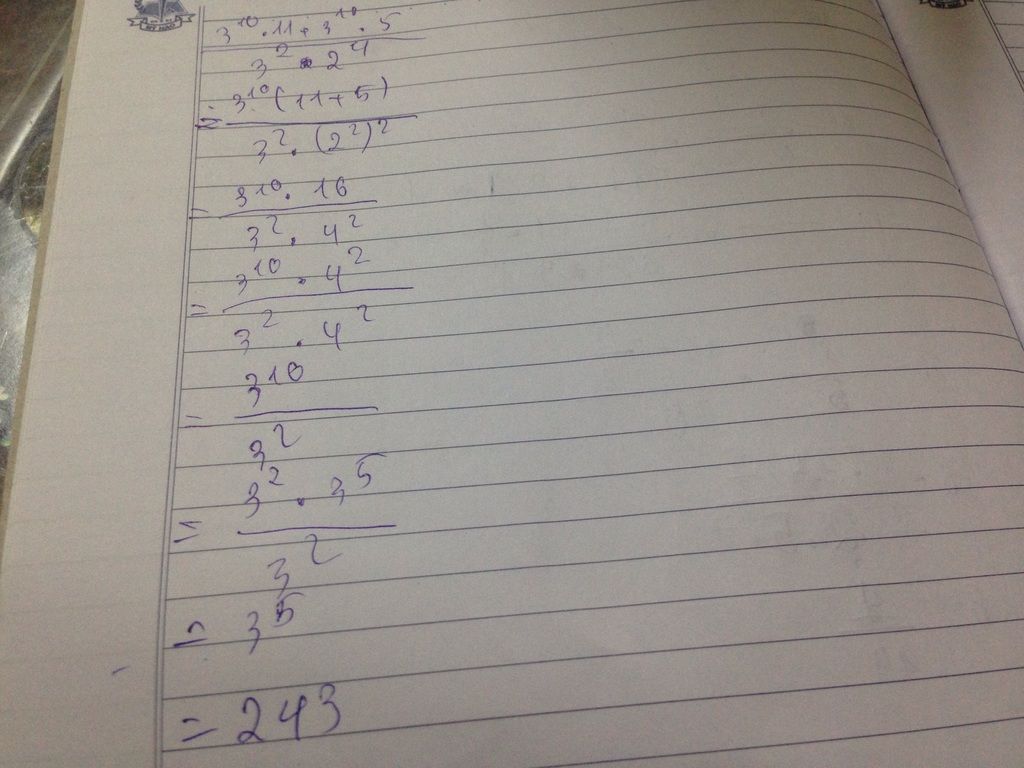 3¹⁰ . 11 + 3¹⁰ . 5
3² . 2⁴
= 3¹⁰ (11 + 5)
3² . (2²)²
= 3¹⁰ . 16
3² . 4²
= 3¹⁰ . 4²
3² . 4²
= 3¹⁰
3²
= 3² . 3⁵
3²
= 3⁵
= 243